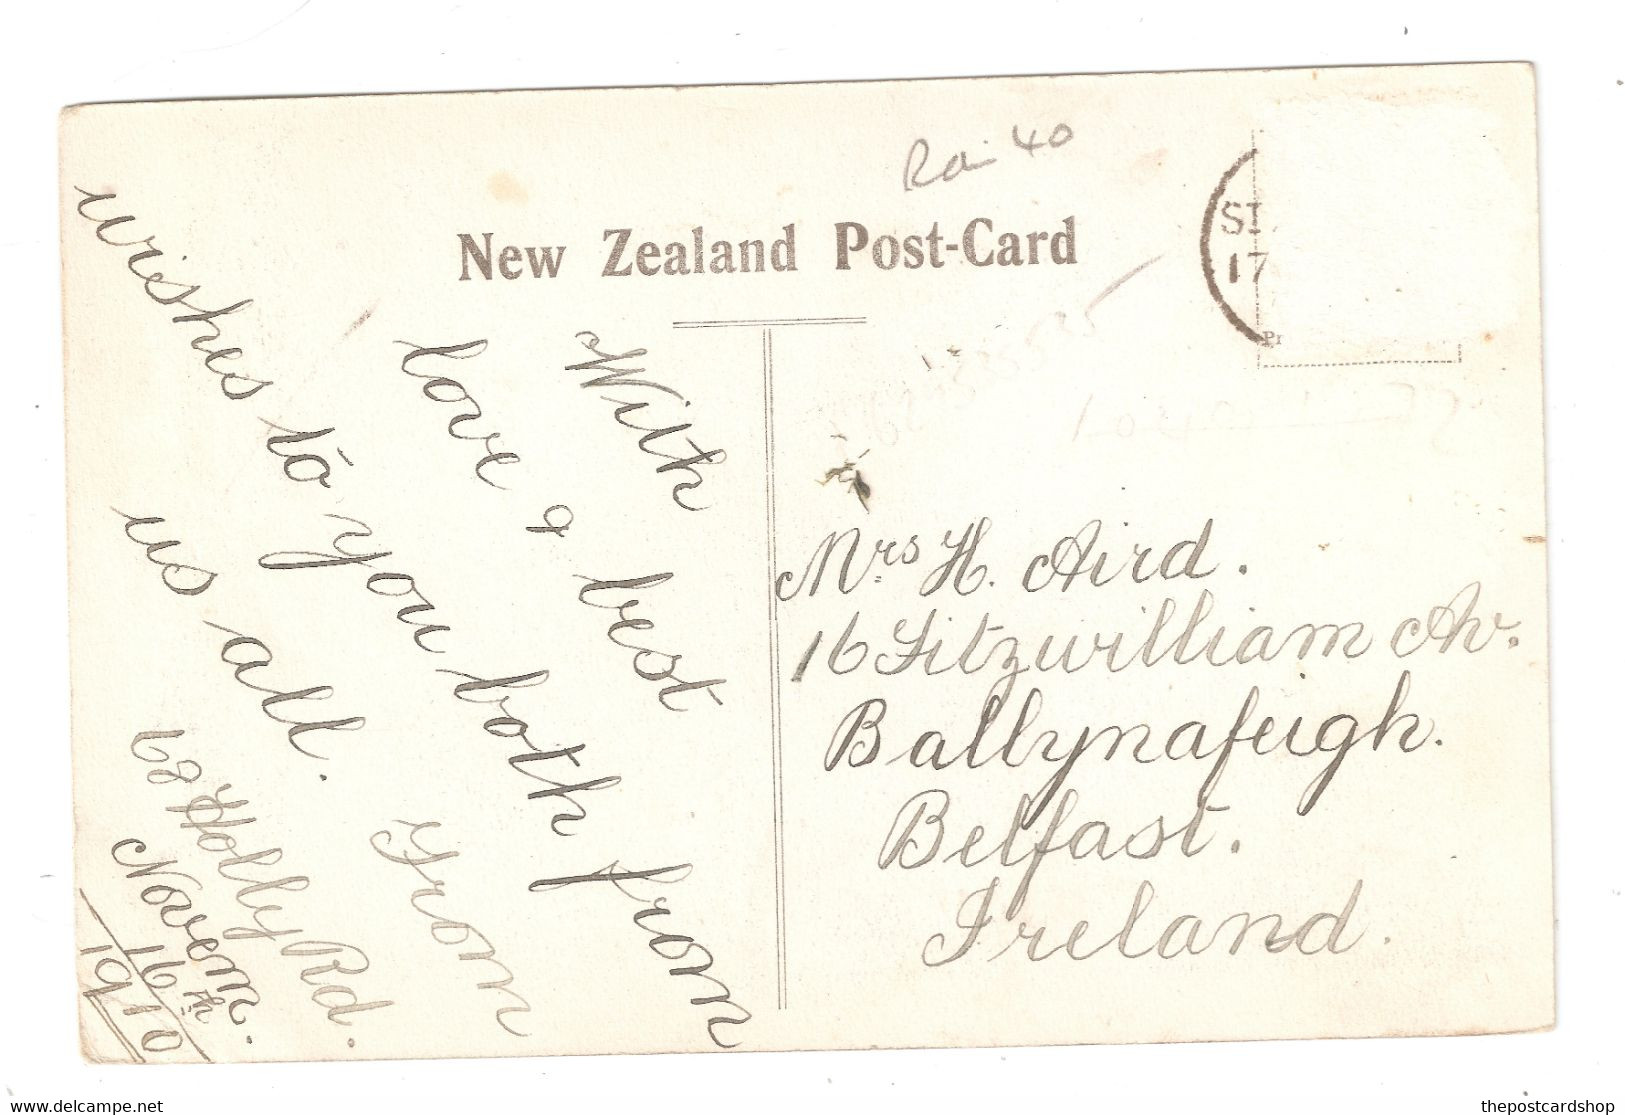 New Zealand Post-Card
40
SI
17
With
love & best
wishes to you both from
us all.
From
68 Holly Rd.
Novem.
16th
1910
Mrs H. Aird.
16 Fitzwilliam Av.
Ballynafeigh.
Belfast.
Ireland.
www.delcampe.net
thepostcardshop